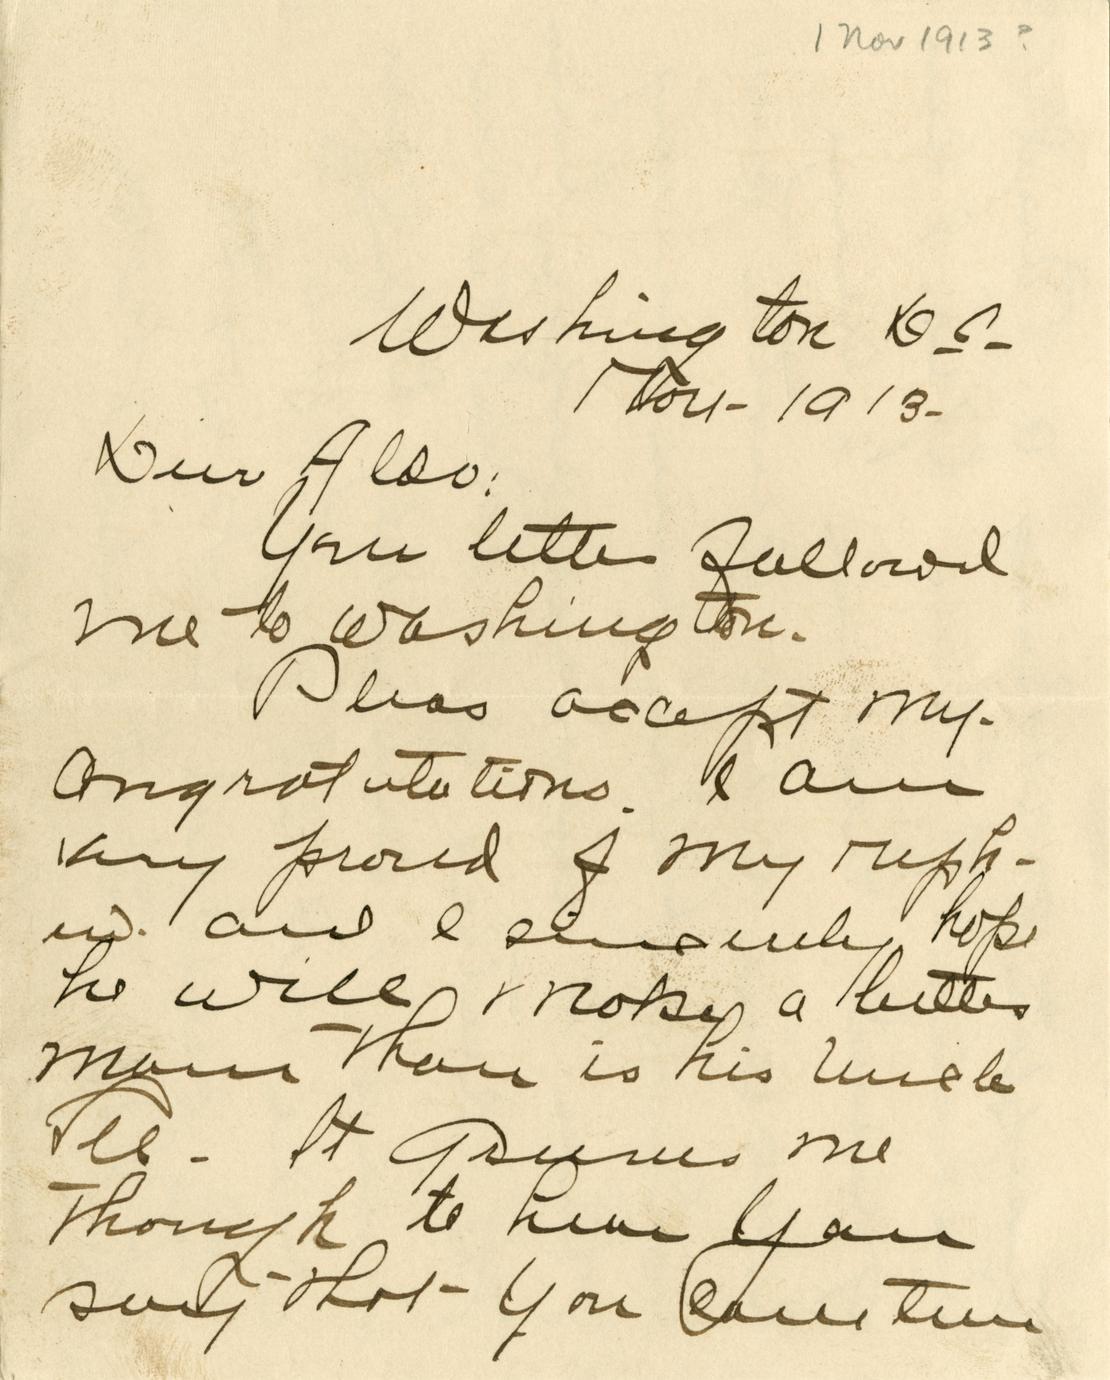 1 Nov 1913?
Washington D.C.
1 Nov- 1913-
Dear Aldo:
Your letter followed
me to Washington.
Pleas accept my
congratulations. I am
very proud of my neph-
ew. and I sincerely hope
he will make a better
man than is his Uncle
It me
though to hear you
say that you